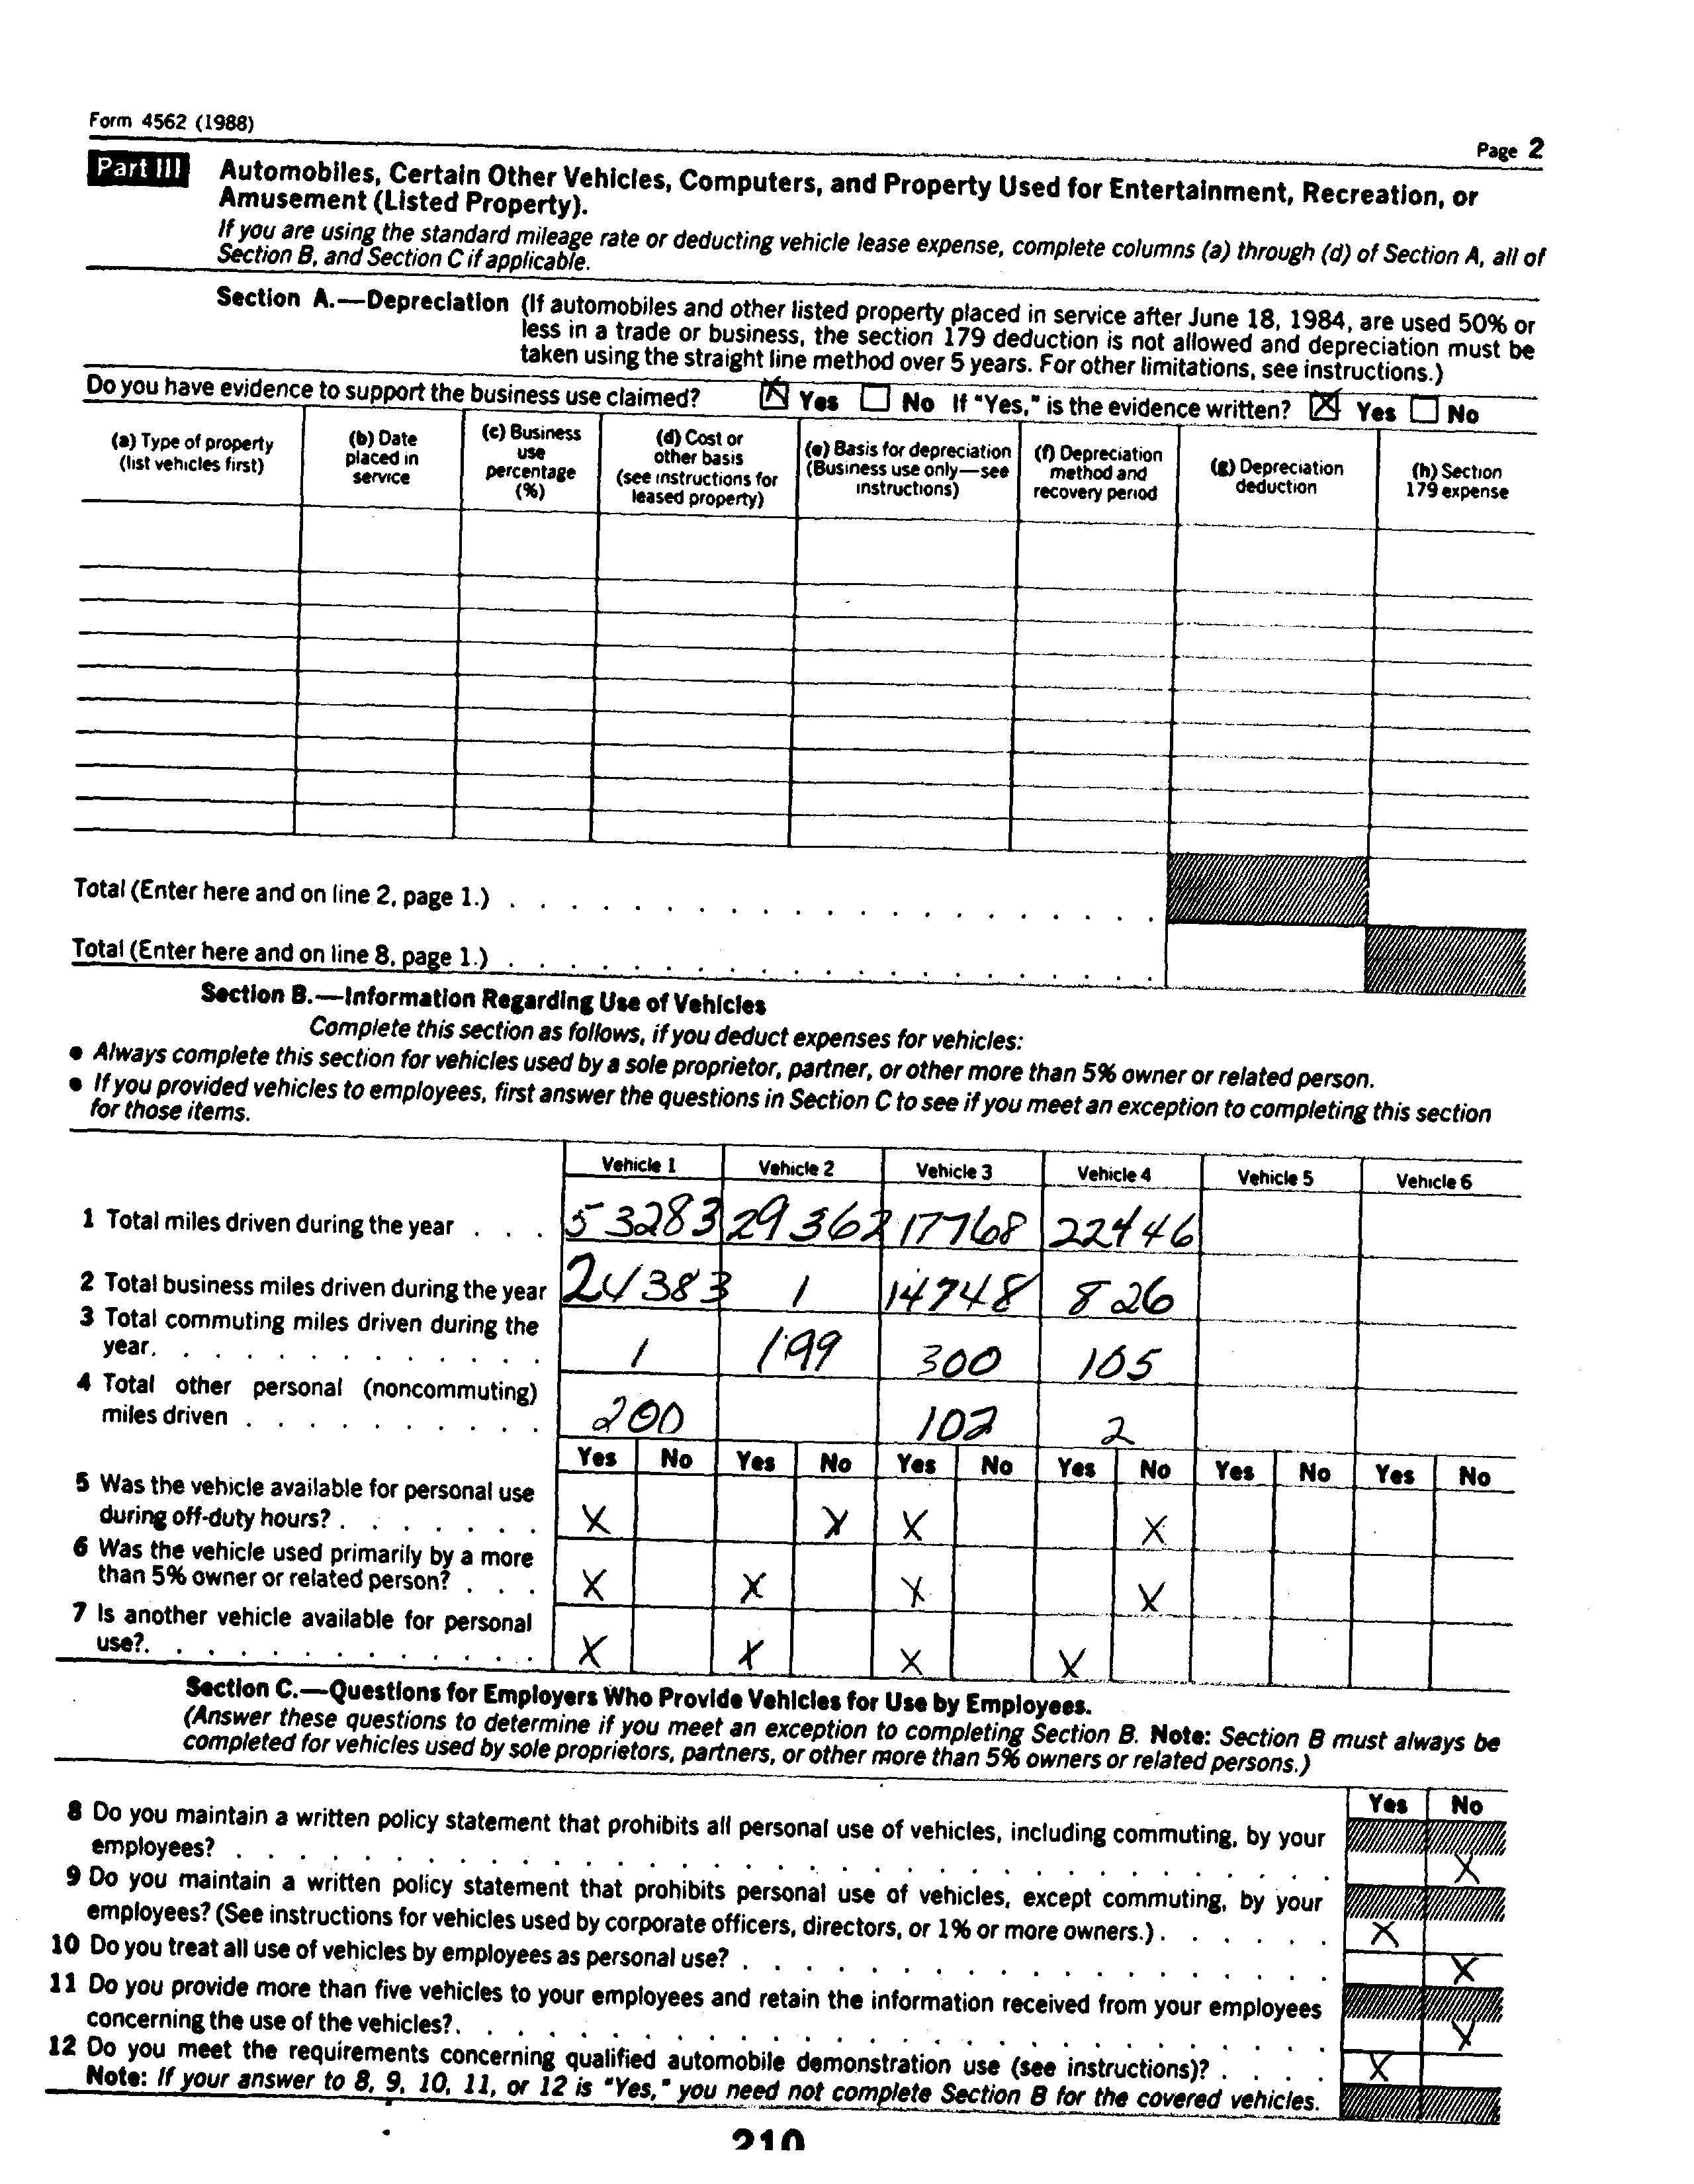 Form 4562 (1988)
Page 2
Part III Automobiles, Certain Other Vehicles, Computers, and Property Used for Entertainment, Recreation, or
Amusement (Listed Property).
If you are using the standard mileage rate or deducting vehicle lease expense, complete columns (a) through (d) of Section A, all of
Section B, and Section C if applicable.
Section A.—Depreciation (If automobiles and other listed property placed in service after June 18, 1984, are used 50% or
less in a trade or business, the section 179 deduction is not allowed and depreciation must be
taken using the straight line method over 5 years. For other limitations, see instructions.)
Do you have evidence to support the business use claimed? X Yes No If "Yes," is the evidence written? X Yes No
(a) Type of property
(list vehicles first)
(b) Date
placed in
service
(c) Business
use
percentage
(%)
(d) Cost or
other basis
(see instructions for
leased property)
(e) Basis for depreciation
(Business use only—see
instructions)
(f) Depreciation
method and
recovery period
(g) Depreciation
deduction
(h) Section
179 expense
Total (Enter here and on line 2, page 1.)
Total (Enter here and on line 8, page 1.)
Section B.—Information Regarding Use of Vehicles
Complete this section as follows, if you deduct expenses for vehicles:
• Always complete this section for vehicles used by a sole proprietor, partner, or other more than 5% owner or related person.
• If you provided vehicles to employees, first answer the questions in Section C to see if you meet an exception to completing this section
for those items.
Vehicle 1 Vehicle 2 Vehicle 3 Vehicle 4 Vehicle 5 Vehicle 6
1 Total miles driven during the year . . . 53283 29362 17768 22446
2 Total business miles driven during the year 24383 1 14748 826
3 Total commuting miles driven during the
year. . . . . . . . . . . . . 1 199 300 105
4 Total other personal (noncommuting)
miles driven . . . . . . . . . . 200 102 2
Yes No Yes No Yes No Yes No Yes No Yes No
5 Was the vehicle available for personal use
during off-duty hours? . . . . . . . X X X X
6 Was the vehicle used primarily by a more
than 5% owner or related person? . . . X X X X
7 Is another vehicle available for personal
use?. . . . . . . . . . . . . X X X X
Section C.—Questions for Employers Who Provide Vehicles for Use by Employees.
(Answer these questions to determine if you meet an exception to completing Section B. Note: Section B must always be
completed for vehicles used by sole proprietors, partners, or other more than 5% owners or related persons.)
Yes No
8 Do you maintain a written policy statement that prohibits all personal use of vehicles, including commuting, by your
employees? X
9 Do you maintain a written policy statement that prohibits personal use of vehicles, except commuting, by your
employees? (See instructions for vehicles used by corporate officers, directors, or 1% or more owners.) . . . . . . X
10 Do you treat all use of vehicles by employees as personal use? X
11 Do you provide more than five vehicles to your employees and retain the information received from your employees
concerning the use of the vehicles?. X
12 Do you meet the requirements concerning qualified automobile demonstration use (see instructions)? . . . . X
Note: If your answer to 8, 9, 10, 11, or 12 is "Yes," you need not complete Section B for the covered vehicles.
210